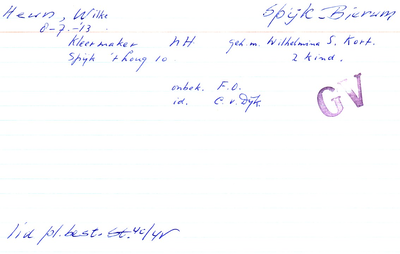 Heurn, Wilke Spijk-Bierum
8-7-'13
Kleermaker NH geh.m. Wilhelmina S. Kort.
Spijk 't Loug 10 2 kind.
onbek. F.O.
id. C.v.Dijk.
GV
lid pl.best.